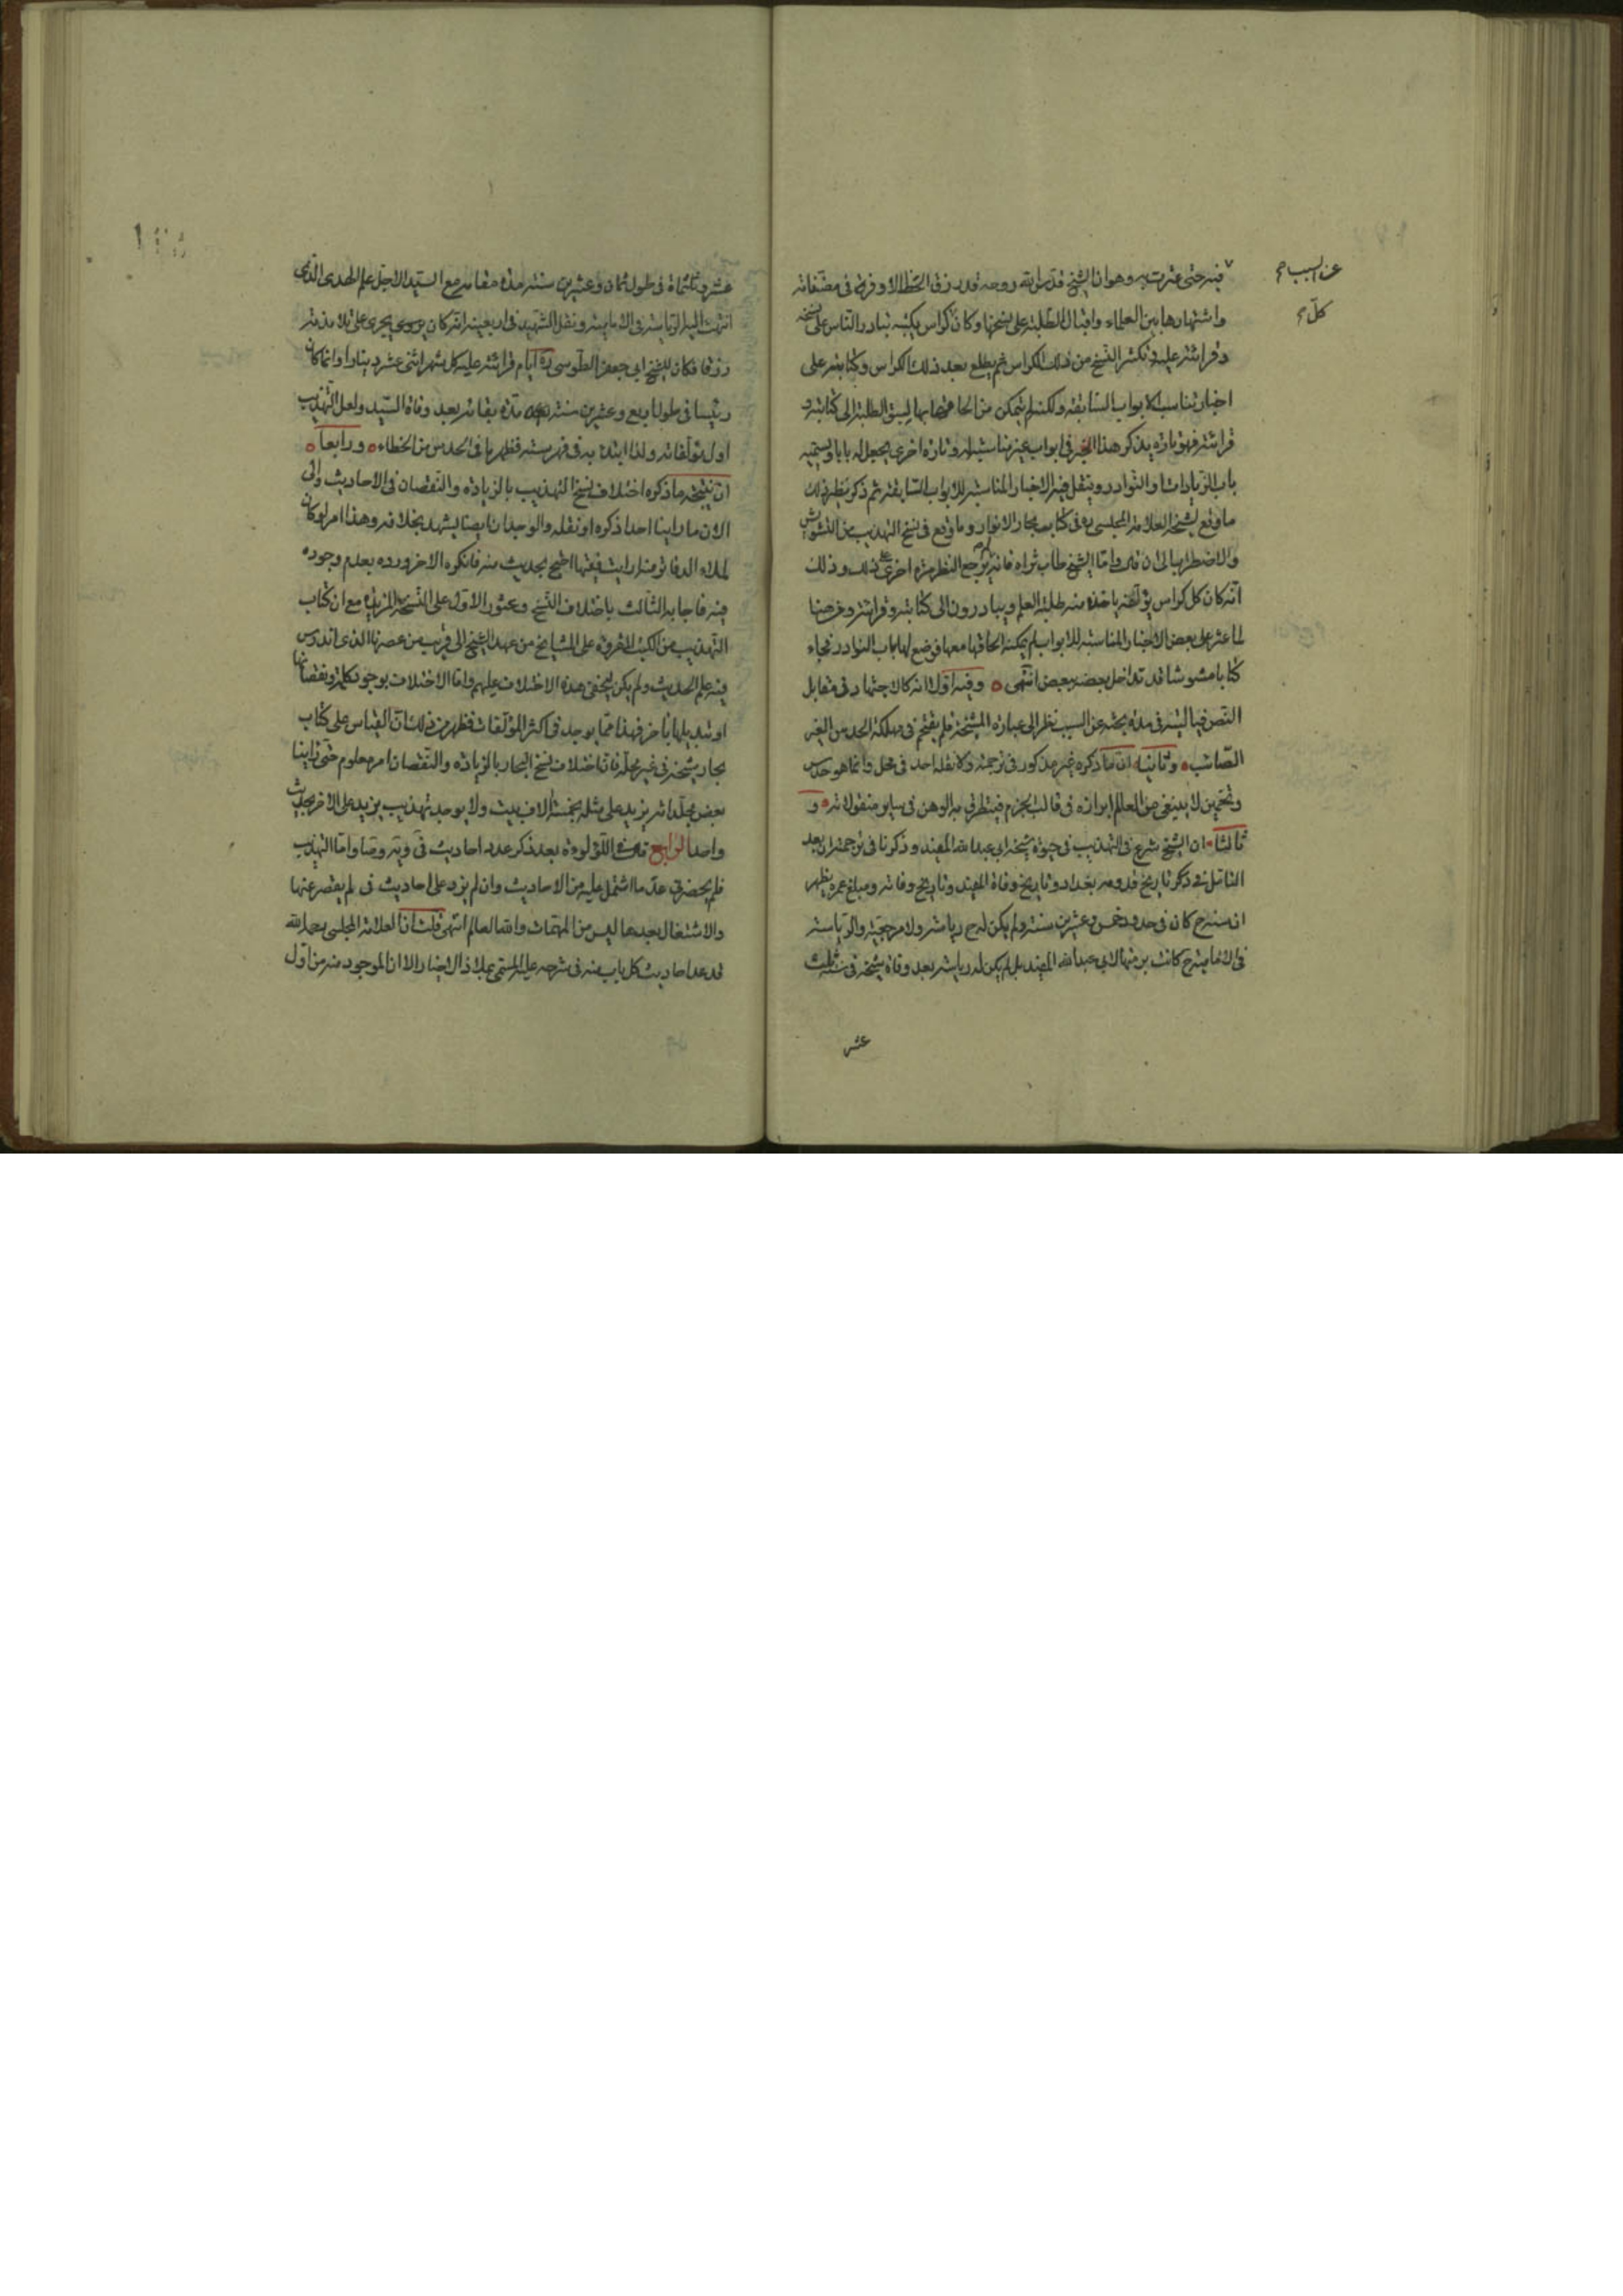 عن السبب صح
كل صح
فيه حتى عثرت به وهو ان الشيخ قدس الله روحه قد رزق الحظ الاوفر في مصنفاته
واشتهارها بين العلماء واقبال الطلبة على نسخها وكان كراس يكتبه تبادر الناس على نسخه
وقرائته عليه وتكثر النسخ من ذلك الكراس ثم يطلع بعد ذلك الكراس وكتابته على
اخبار تناسب الابواب السابقة ولكنه لم يتمكن من الحاقها بها لسبق الطلبة الى كتابته و
قرائته فهو تارة يذكر هذا الخبر في ابواب غير مناسبة له وتارة اخرى يجعل له بابا ويسميه
باب الزيادات او النوادر وينقل فيه الاخبار المناسبة للابواب السابقة ثم ذكر نظير ذلك
ما وقع لشيخه العلامة المجلسي ره في كتاب بحار الانوار وما وقع في نسخ التهذيب من التشويش
والاضطراب الى ان قال واما الشيخ طاب ثراه فانه لم يرجع النظر مرة اخرى على ذلك وذلك
انه كان كل كراس يؤلفه ياخذه منه طلبة العلم ويبادرون الى كتابته وقرائته وخرجنها
لما عثر على بعض الاخبار المناسبة للابواب لم يمكنه الحاقها معها فوضع لها باب النوادر فجاء
كتابا مشوشا قد تداخل بعضه ببعض انتهى وفيه اولا انه كالاجتهاد في مقابل
النص فيا ليته في مدة بحثه عن السبب نظر الى عبارة المشيخة فلم يقتحم في مهلكة الحدس الغير
الصائب وثانيا ان ما ذكره غير مذكور في ترجمته ولا نقله احد في محل وانما هو حدس
وتخمين لا ينبغي من العالم ابرازه في قالب الجزم فيتطرق به الوهن في ساير منقولاته و
ثالثا ان الشيخ شرع في التهذيب في حيوة شيخه ابي عبد الله المفيد وذكرنا في ترجمته ان بعد
التامل في ذكر تاريخ قدومه بغداد وتاريخ وفاة المفيد وتاريخ وفاته ومبلغ عمره يظهر
ان سنه ح كان في حدود خمس وعشرين سنة ولم يكن له ح رياسة ولا مرجعية والرياسة
في الامامية ح كانت برمتها لابي عبد الله المفيد بل لم يكن له رياسة بعد وفاة شيخه في سنة ثلث
عشر
عشر واربعمائة في طول ثمان وعشرين سنة مدة مقامه مع السيد الاجل علم الهدى الذي
انتهت اليه الرياسة في الامامية ونقل الشهيد في اربعينه انه كان يجري على تلامذته
رزقا فكان للشيخ ابي جعفر الطوسي ره ايام قرائته عليه كل شهر اثنى عشر دينارا وانما كان
رئيسا في طول اربع وعشرين سنة مدة بقائه بعد وفاة السيد ولعل التهذيب
اول مؤلفاته ولذا ابتدء به في فهرسته فظهر ما في الحدس من الخطاء ورابعا
ان نتيجة ما ذكره اختلاف نسخ التهذيب بالزيادة والنقصان في الاحاديث والى
الان ما راينا احدا ذكره او نقله والوجدان ايضا يشهد بخلافه وهذا امر لو كان
لملاء الدفاتر منه ارايت فقيها احتج بحديث منه فانكره الاخر ورده بعدم وجوده
فيه فاجابه الثالث باختلاف النسخ وعثور الاول على النسخة المزيدة مع ان كتاب
التهذيب من الكتب المقروة على المشايخ من عهد الشيخ الى قريب من عصرنا الذي اندرس
فيه علم الحديث ولم يكن ليخفى هذه الاختلاف عليهم واما الاختلاف بوجود كلمة ونقصانها
او تبديلها باخر فهذا مما يوجد في اكثر المؤلفات فظهر من ذلك ان القياس على كتاب
بحار شيخه في غير محله فان اختلاف نسخ البحار بالزيادة والنقصان امر معلوم حتى راينا
بعض مجلداته يزيد على مثله بخمسة الاف بيت ولا يوجد تهذيب يزيد على الاخر بحديث
واحد الرابع قال في اللؤلؤة بعد ذكر عدد احاديث في ويه وصا واما التهذيب
فلم يحضرني عد ما اشتمل عليه من الاحاديث وان لم يزد على احاديث في لم يقصر عنها
والاشتغال بعدها ليس من المهمات والله العالم انتهى قلت ان العلامة المجلسي رحمه الله
قد عد احاديث كل باب منه في شرحه عليه المسمى بملاذ الاخيار الا ان الموجود منه من اول